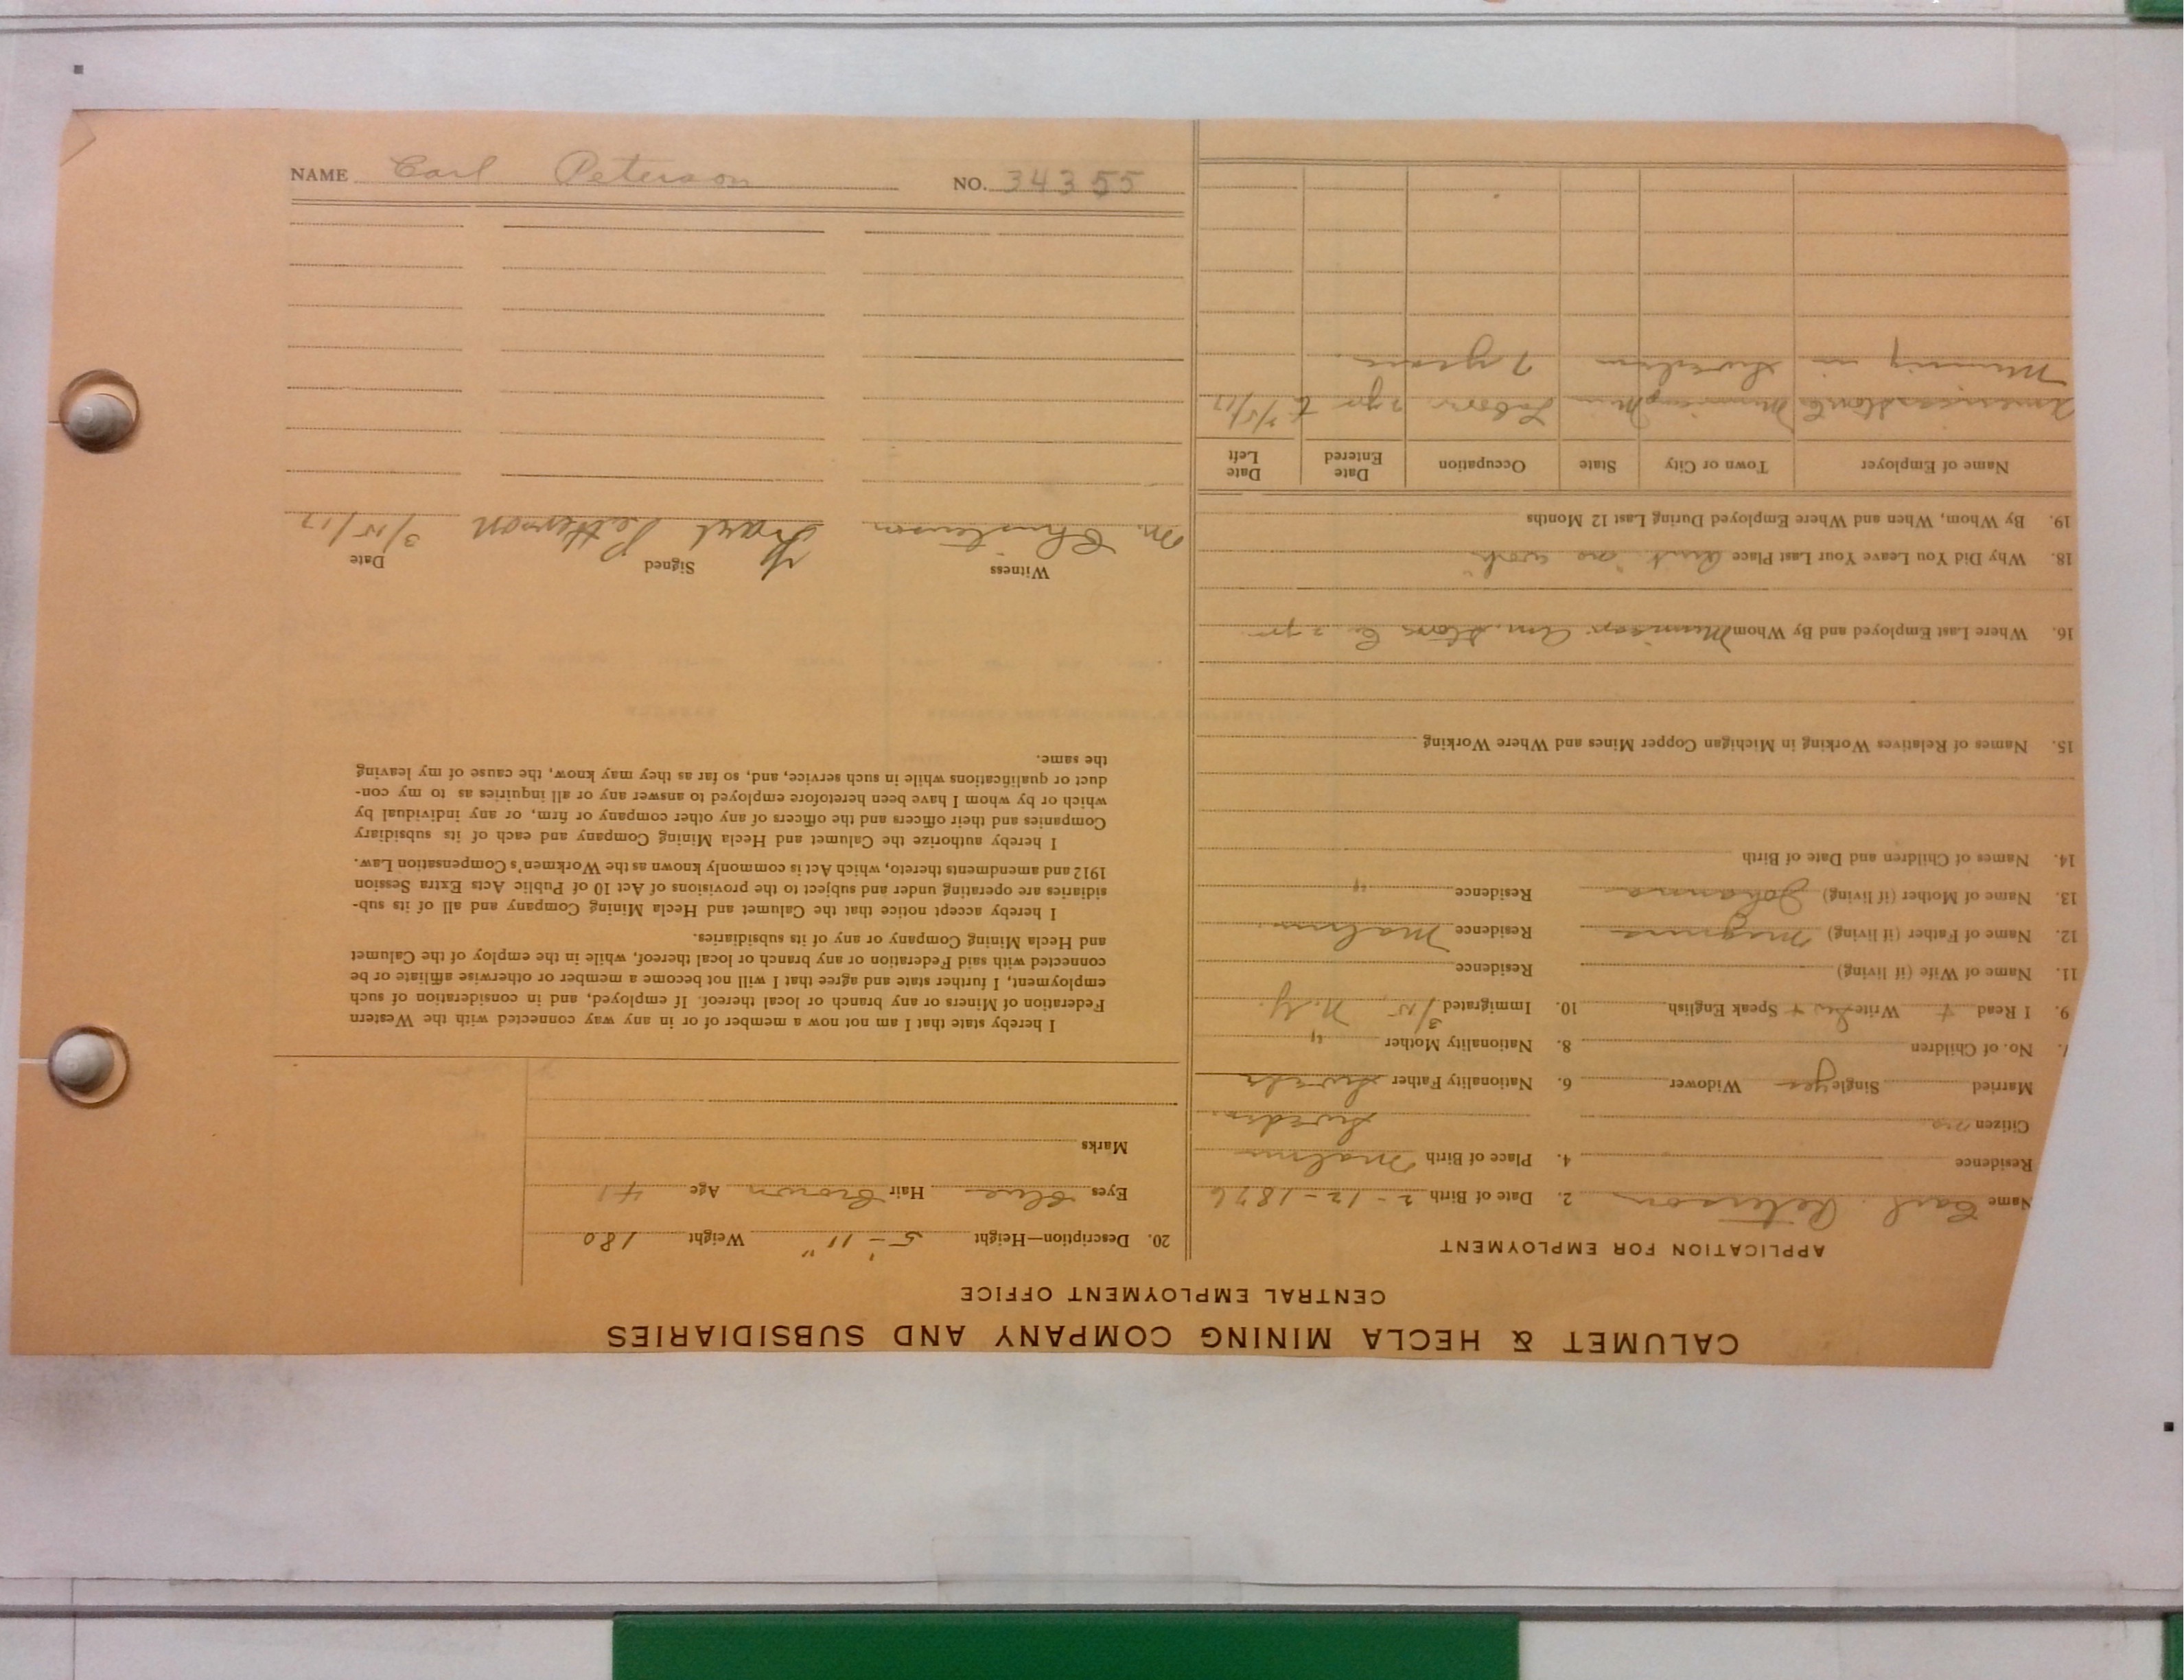 NAME Carl Peterson NO. 34355
CALUMET & HECLA MINING COMPANY AND SUBSIDIARIES
CENTRAL EMPLOYMENT OFFICE
APPLICATION FOR EMPLOYMENT
Name Carl Peterson 2. Date of Birth 2-12-1876
Residence 4. Place of Birth Malmo
Citizen no Sweden
Married Single yes Widower 6. Nationality Father Swede
7. No. of Children 8. Nationality Mother "
9. I Read + Write Speak English 10. Immigrated 3/15 N.Y.
11. Name of Wife (if living) Residence
12. Name of Father (if living) Magnus Residence Malmo
13. Name of Mother (if living) Johanna Residence "
14. Names of Children and Date of Birth
15. Names of Relatives Working in Michigan Copper Mines and Where Working
16. Where Last Employed and By Whom Munising Am. Stone Co 2 yr
18. Why Did You Leave Your Last Place no work
19. By Whom, When and Where Employed During Last 12 Months
Name of Employer Town or City State Occupation Date Entered Date Left
American Stone Co Munising Labor 2 yr to
in Sweden 7 years
20. Description—Height 5-11" Weight 180
Eyes Blue Hair Brown Age 41
Marks
I hereby state that I am not now a member of or in any way connected with the Western
Federation of Miners or any branch or local thereof. If employed, and in consideration of such
employment, I further state and agree that I will not become a member or otherwise affiliate or be
connected with said Federation or any branch or local thereof, while in the employ of the Calumet
and Hecla Mining Company or any of its subsidiaries.
I hereby accept notice that the Calumet and Hecla Mining Company and all of its sub-
sidiaries are operating under and subject to the provisions of Act 10 of Public Acts Extra Session
1912 and amendments thereto, which Act is commonly known as the Workmen's Compensation Law.
I hereby authorize the Calumet and Hecla Mining Company and each of its subsidiary
Companies and their officers and the officers of any other company or firm, or any individual by
which or by whom I have been heretofore employed to answer any or all inquiries as to my con-
duct or qualifications while in such service, and, so far as they may know, the cause of my leaving
the same.
Witness Signed Date
M. Christenson Karl Petterson 3/15/17